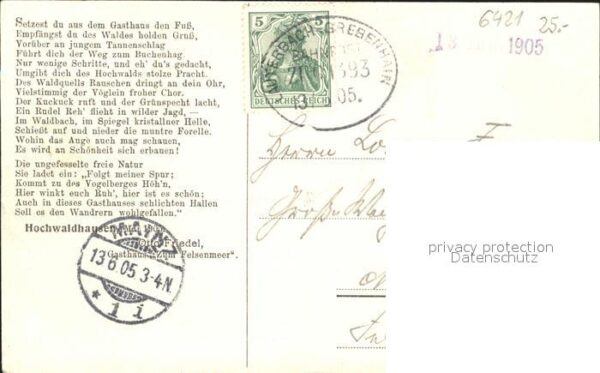 Setzest du aus dem Gasthaus den Fuß,
Empfängst du des Waldes holden Gruß,
Vorüber an jungem Tannenschlag
Führt dich der Weg zum Buchenhag.
Nur wenige Schritte, und eh' du's gedacht,
Umgibt dich des Hochwalds stolze Pracht.
Des Waldquells Rauschen dringt an dein Ohr,
Vielstimmig der Vöglein froher Chor.
Der Kuckuck ruft und der Grünspecht lacht,
Ein Rudel Reh' flieht in wilder Jagd, —
Im Waldbach, im Spiegel kristallner Helle,
Schießt auf und nieder die muntre Forelle.
Wohin das Auge auch mag schauen,
Es wird an Schönheit sich erbauen!
Die ungefesselte freie Natur
Sie ladet ein: „Folgt meiner Spur;
Kommt zu des Vogelberges Höh'n,
Hier winkt euch Ruh', hier ist es schön;
Auch in dieses Gasthauses schlichten Hallen
Soll es den Wandrern wohlgefallen."
Hochwaldhausen
Otto Friedel,
Gasthaus „Zum Felsenmeer".
MAINZ
13.6.05 3-4N.
* 1 i
5 5
DEUTSCHES REICH
LAUTERBACH-GREBENHAIN
BAHNPOST
ZUG 393
05.
6421
25.-
1905
Herrn
Große
privacy protection
Datenschutz